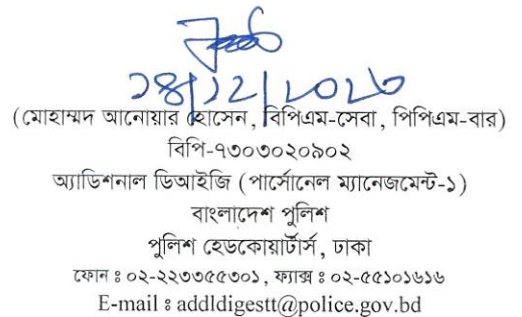 ১৪/১২/২০২৩
(মোহাম্মদ আনোয়ার হোসেন, বিপিএম-সেবা, পিপিএম-বার)
বিপি-৭৩০৩০২০৯০২
অ্যাডিশনাল ডিআইজি (পার্সোনেল ম্যানেজমেন্ট-১)
বাংলাদেশ পুলিশ
পুলিশ হেডকোয়ার্টার্স, ঢাকা
ফোন ঃ ০২-২২৩৩৫৫৩০১, ফ্যাক্স ঃ ০২-৫৫১০১৬১৬
E-mail ঃ addldigestt@police.gov.bd